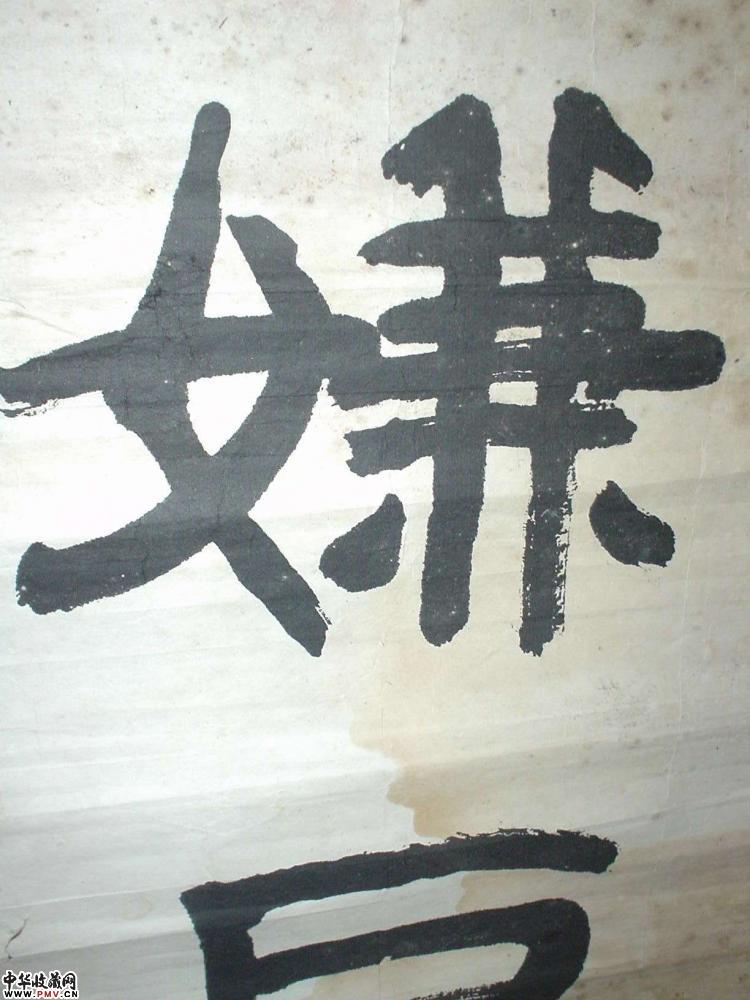 嫌
中华收藏网
www.PMV.CN